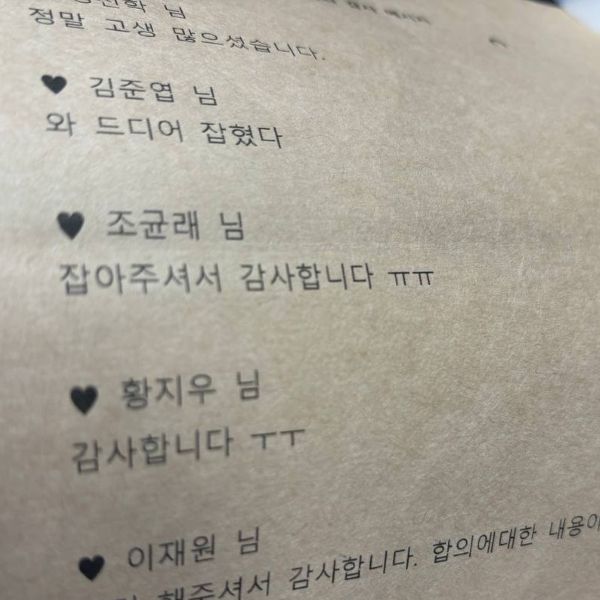 님
정말 고생 많으셨습니다.
♥ 김준엽 님
와 드디어 잡혔다
♥ 조균래 님
잡아주셔서 감사합니다 ㅠㅠ
♥ 황지우 님
감사합니다 ㅜㅜ
♥ 이재원 님
해주셔서 감사합니다. 합의에대한 내용이